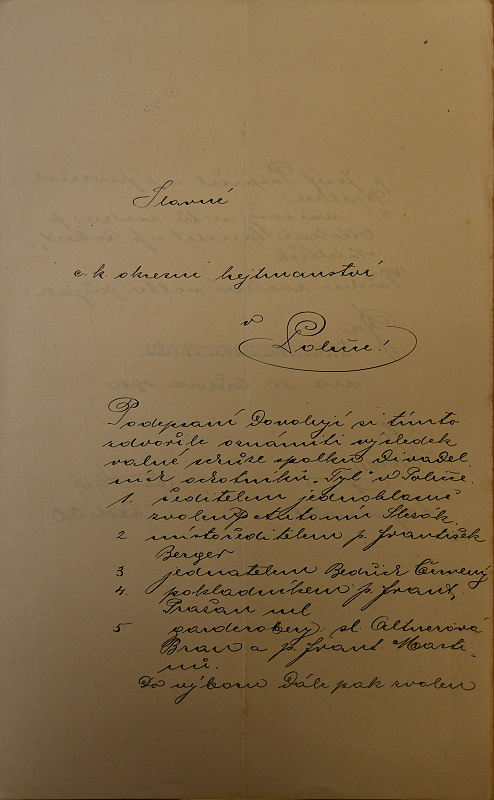 Slavné
c. k. okresní hejtmanství
v
Poličce!
Podepsaní dovolují si tímto
zdvořile oznámiti výsledek
valné schůze spolku divadel,
ních ochotníků "Tyl" v Poličce.
1. ředitelem jednohlasně
zvolen p Antonín Slezák,
2 místoředitelem p. František
Berger
3 jednatelem Bedřich Červený
4. pokladníkem p. Frant,
Pražan ml
5 garderobery: sl. Altnerová
Braun a p. Frant. Marti-
nů.
Do výboru dále pak zvolen